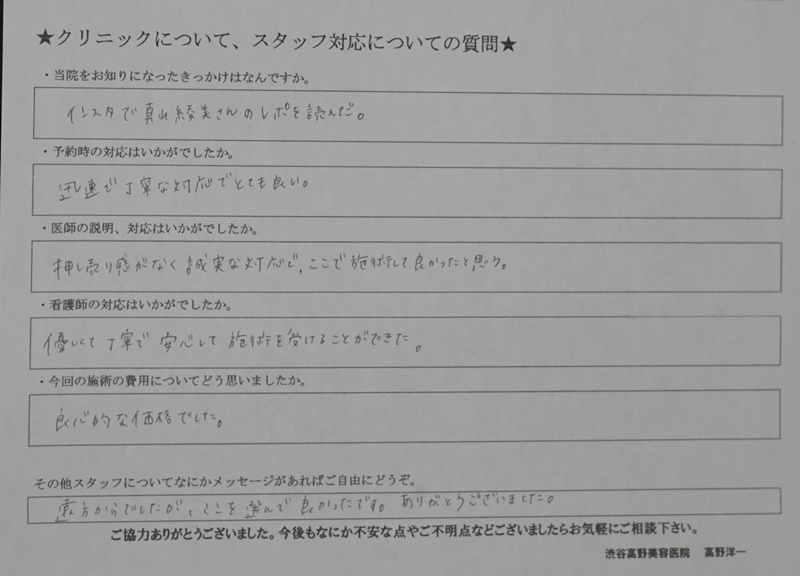 ★クリニックについて、スタッフ対応についての質問★
・当院をお知りになったきっかけはなんですか。
インスタで真山綾美さんのレポを読んだ。
・予約時の対応はいかがでしたか。
迅速で丁寧な対応でとても良い。
・医師の説明、対応はいかがでしたか。
押し売り感がなく誠実な対応で、ここで施術して良かったと思う。
・看護師の対応はいかがでしたか。
優しくて丁寧で安心して施術を受けることができた。
・今回の施術の費用についてどう思いましたか。
良心的な価格でした。
その他スタッフについてなにかメッセージがあればご自由にどうぞ。
遠方からでしたが、ここを選んで良かったです。ありがとうございました。
ご協力ありがとうございました。今後もなにか不安な点やご不明点などございましたらお気軽にご相談下さい。
渋谷高野美容医院 高野洋一